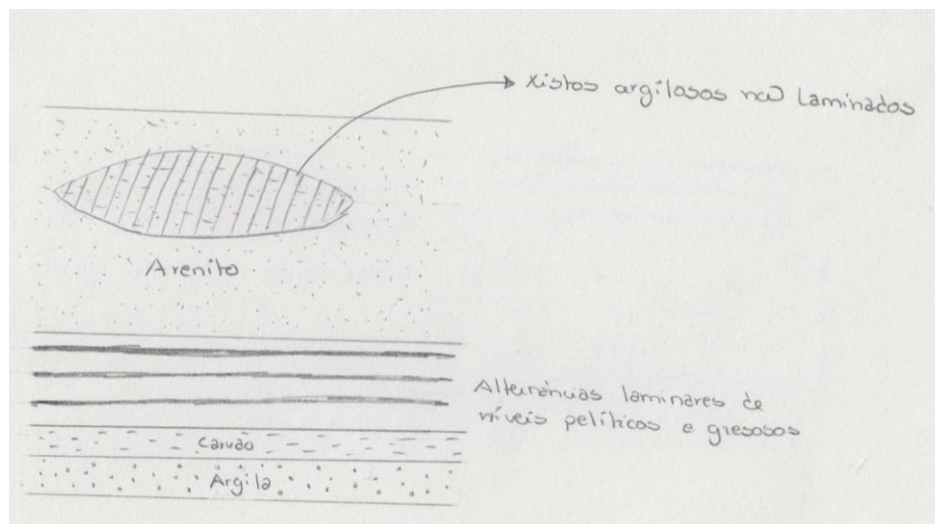 xistos argilosos não laminados
Arenito
Alternâncias laminares de
níveis pelíticos e gresosos
Carvão
Argila